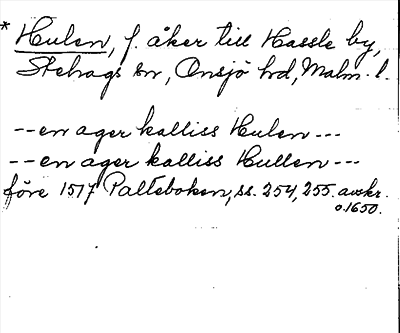 * Hulen, f. åker till Hassle by,
Stehags sn, Onsjö hd, Malm. l.
-- en ager kalliss Hulen ---
-- en ager kalliss Hullen ---
före 1517 Palteboken, ss. 254, 255. avskr.
o. 1650.